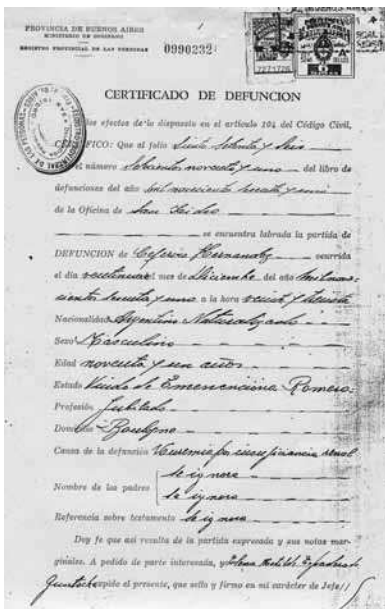 PROVINCIA DE BUENOS AIRES
MINISTERIO DE GOBIERNO
REGISTRO PROVINCIAL DE LAS PERSONAS
0990232
CERTIFICADO DE DEFUNCION
los efectos de lo dispuesto en el artículo 104 del Código Civil,
CERTIFICO: Que al folio Ciento Setenta y Seis
el número Seiscientos noventa y uno del libro de
defunciones del año mil novecientos sesenta y uno
de la Oficina de San Isidro
se encuentra labrada la partida de
DEFUNCION de Ceferino Hernandez ocurrida
el día veintiuno del mes de Diciembre del año mil nove-
cientos sesenta y uno a la hora veinte y treinta
Nacionalidad Argentino Naturalizado
Sexo Masculino
Edad noventa y un años
Estado Viudo de Emerenciana Romero
Profesión Jubilado
Domicilio Boulogne
Causa de la defunción Uremia por insuficiencia renal
Nombre de los padres
se ignora
se ignora
Referencia sobre testamento se ignora
Doy fe que así resulta de la partida expresada y sus notas mar-
ginales. A pedido de parte interesada, y
expido el presente, que sello y firmo en mi carácter de Jefe